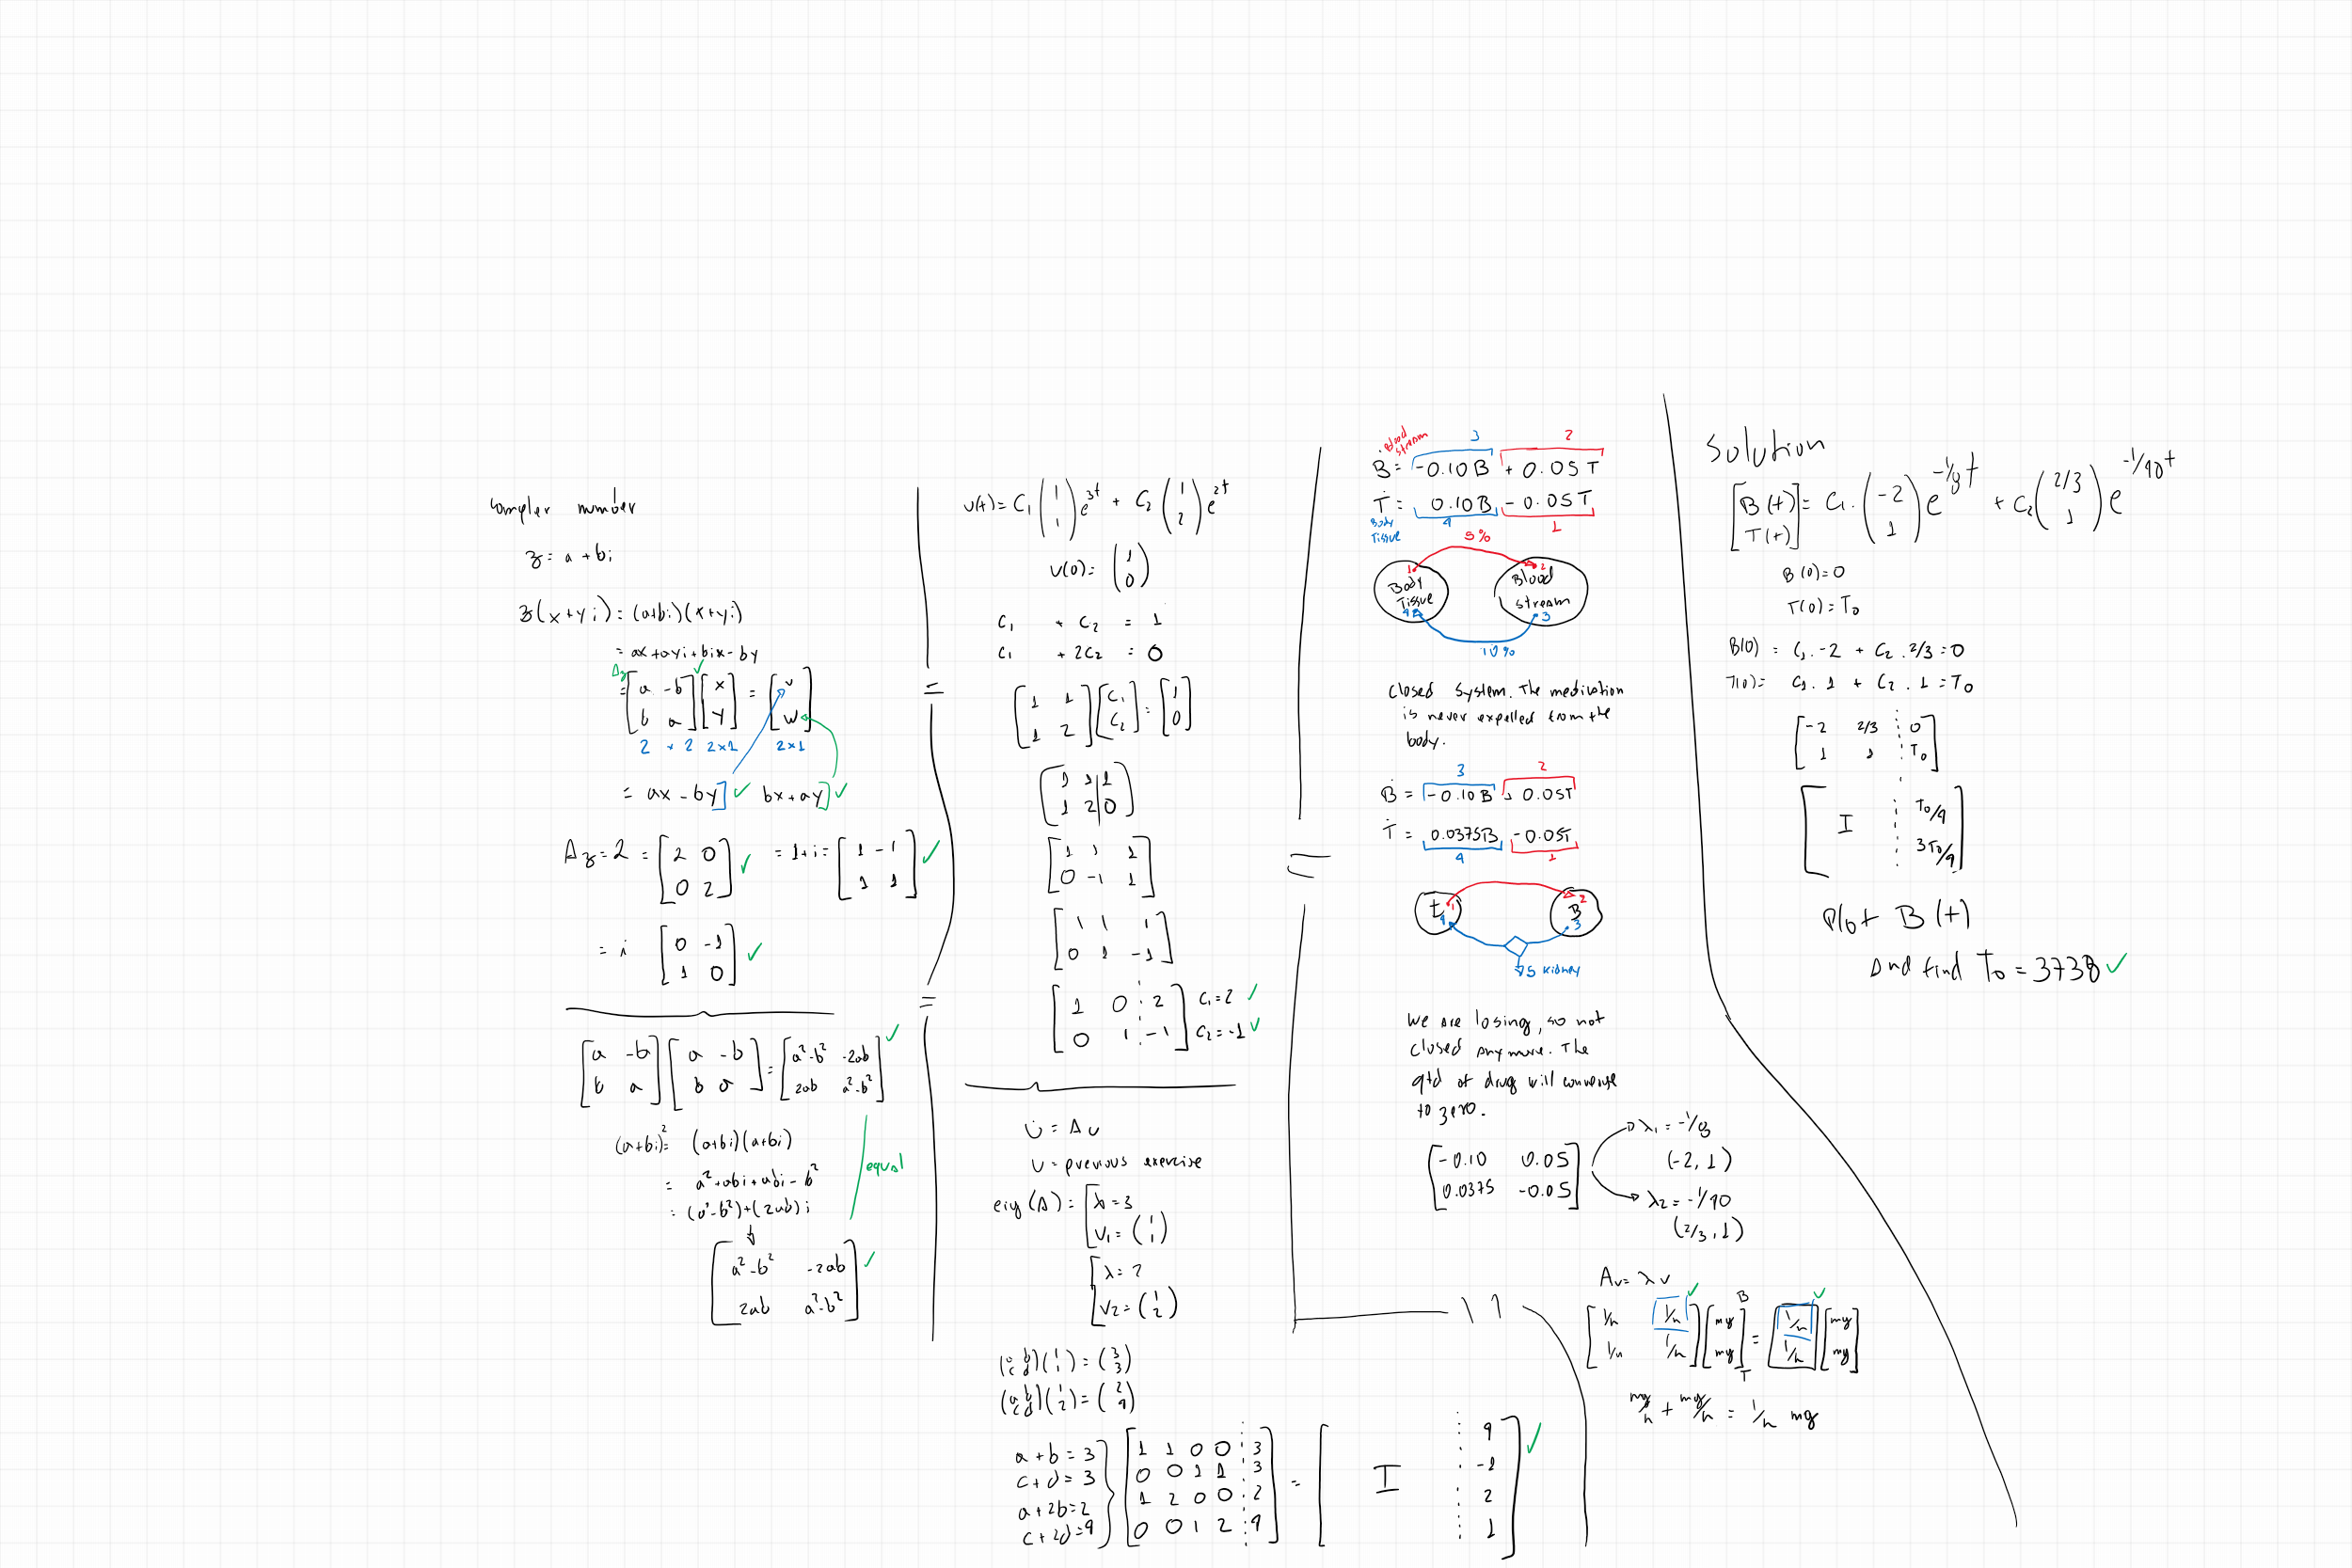 complex number
z = a + bi
z(x+yi) = (a+bi)(x+yi)
= ax + ayi + bix - by
Az
= [a -b; b a] [x; y] = [v; w]
2 x 2 2x1 2x1
= ax - by] ✓ bx + ay] ✓
Az = 2 = [2 0; 0 2] ✓ = 1+i = [1 -1; 1 1] ✓
= i [0 -1; 1 0] ✓
[a -b; b a] [a -b; b a] = [a²-b² -2ab; 2ab a²-b²] ✓
(a+bi)² = (a+bi)(a+bi)
= a² + abi + abi - b²
= (a²-b²) + (2ab)i
equal
[a²-b² -2ab; 2ab a²-b²] ✓
v(t) = C1 (1; 1) e^3t + C2 (1; 2) e^2t
v(0) = (1; 0)
C1 + C2 = 1
C1 + 2C2 = 0
[1 1; 1 2] [C1; C2] = [1; 0]
(1 1 | 1; 1 2 | 0)
[1 1 1; 0 -1 1]
[1 1 1; 0 1 -1]
[1 0 : 2; 0 1 : -1] C1 = 2 ✓ C2 = -1 ✓
u̇ = A u
u = previous exercise
eig(A) = [λ = 3
v1 = (1; 1)
[λ = 2
v2 = (1; 2)
(a b; c d)(1; 1) = (3; 3)
(a b; c d)(1; 2) = (2; 4)
a + b = 3
c + d = 3
a + 2b = 2
c + 2d = 4
[1 1 0 0 : 3; 0 0 1 1 : 3; 1 2 0 0 : 2; 0 0 1 2 : 4] = [I : 4; -1; 2; 1] ✓
Blood stream
3 2
Ḃ = -0.10B + 0.05T
Ṫ = 0.10B - 0.05T
Body Tissue
4 1
5%
Body Tissue 1 4
Blood stream 2 3
10%
Closed System. The medication
is never expelled from the
body.
3 2
Ḃ = -0.10B + 0.05T
Ṫ = 0.0375B - 0.05T
4 1
t 1 4
B 2 3
Kidney
We are losing, so not
closed anymore. The
qtd of drug will converge
to zero.
[-0.10 0.05; 0.0375 -0.05]
λ1 = -1/8
(-2, 1)
λ2 = -1/40
(2/3, 1)
Av = λv
[1/h 1/h; 1/h 1/h] [mg; mg] B T = [1/h; 1/h] [mg; mg]
mg/h + mg/h = 1/h mg
Solution
[B(t); T(t)] = C1 . (-2; 1) e^-1/8t + C2 (2/3; 1) e^-1/40t
B(0) = 0
T(0) = T0
B(0) = C1 . -2 + C2 . 2/3 = 0
T(0) = C1 . 1 + C2 . 1 = T0
[-2 2/3 : 0; 1 1 : T0]
[I : T0/4; 3T0/4]
Plot B(t)
And find T0 = 3738 ✓